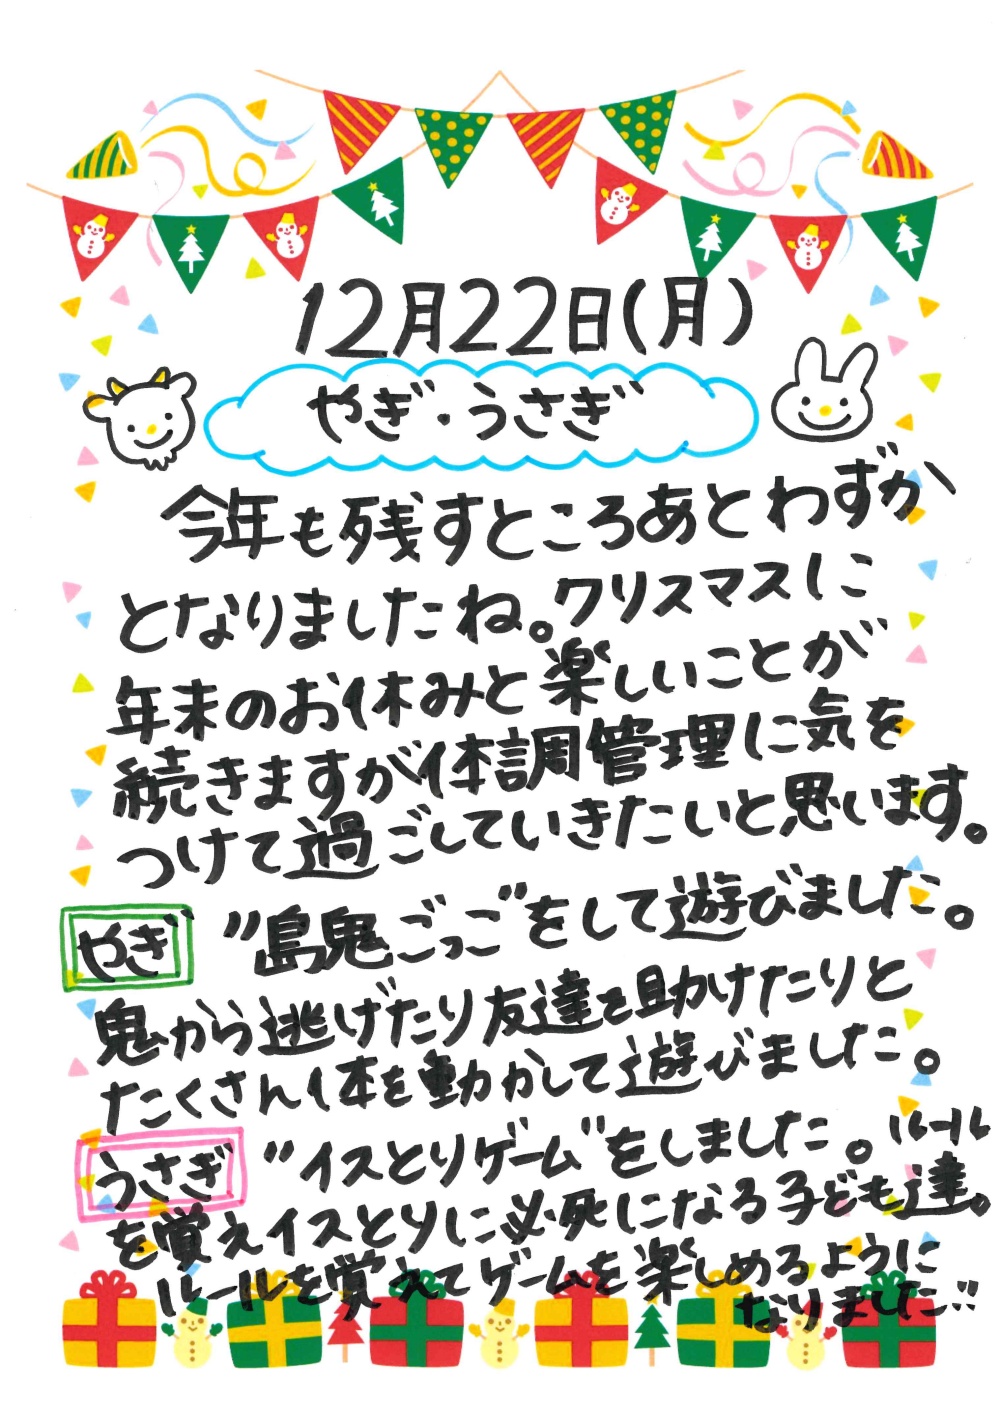 12月22日(月)
やぎ・うさぎ
今年も残すところあとわずか
となりましたね。クリスマスに
年末のお休みと楽しいことが
続きますが体調管理に気を
つけて過ごしていきたいと思います。
やぎ "島鬼ごっこ"をして遊びました。
鬼から逃げたり友達を助けたりと
たくさん体を動かして遊びました。
うさぎ "イスとりゲーム"をしました。ルール
を覚えイスとりに必死になる子ども達。
ルールを覚えてゲームを楽しめるように
なりました!!